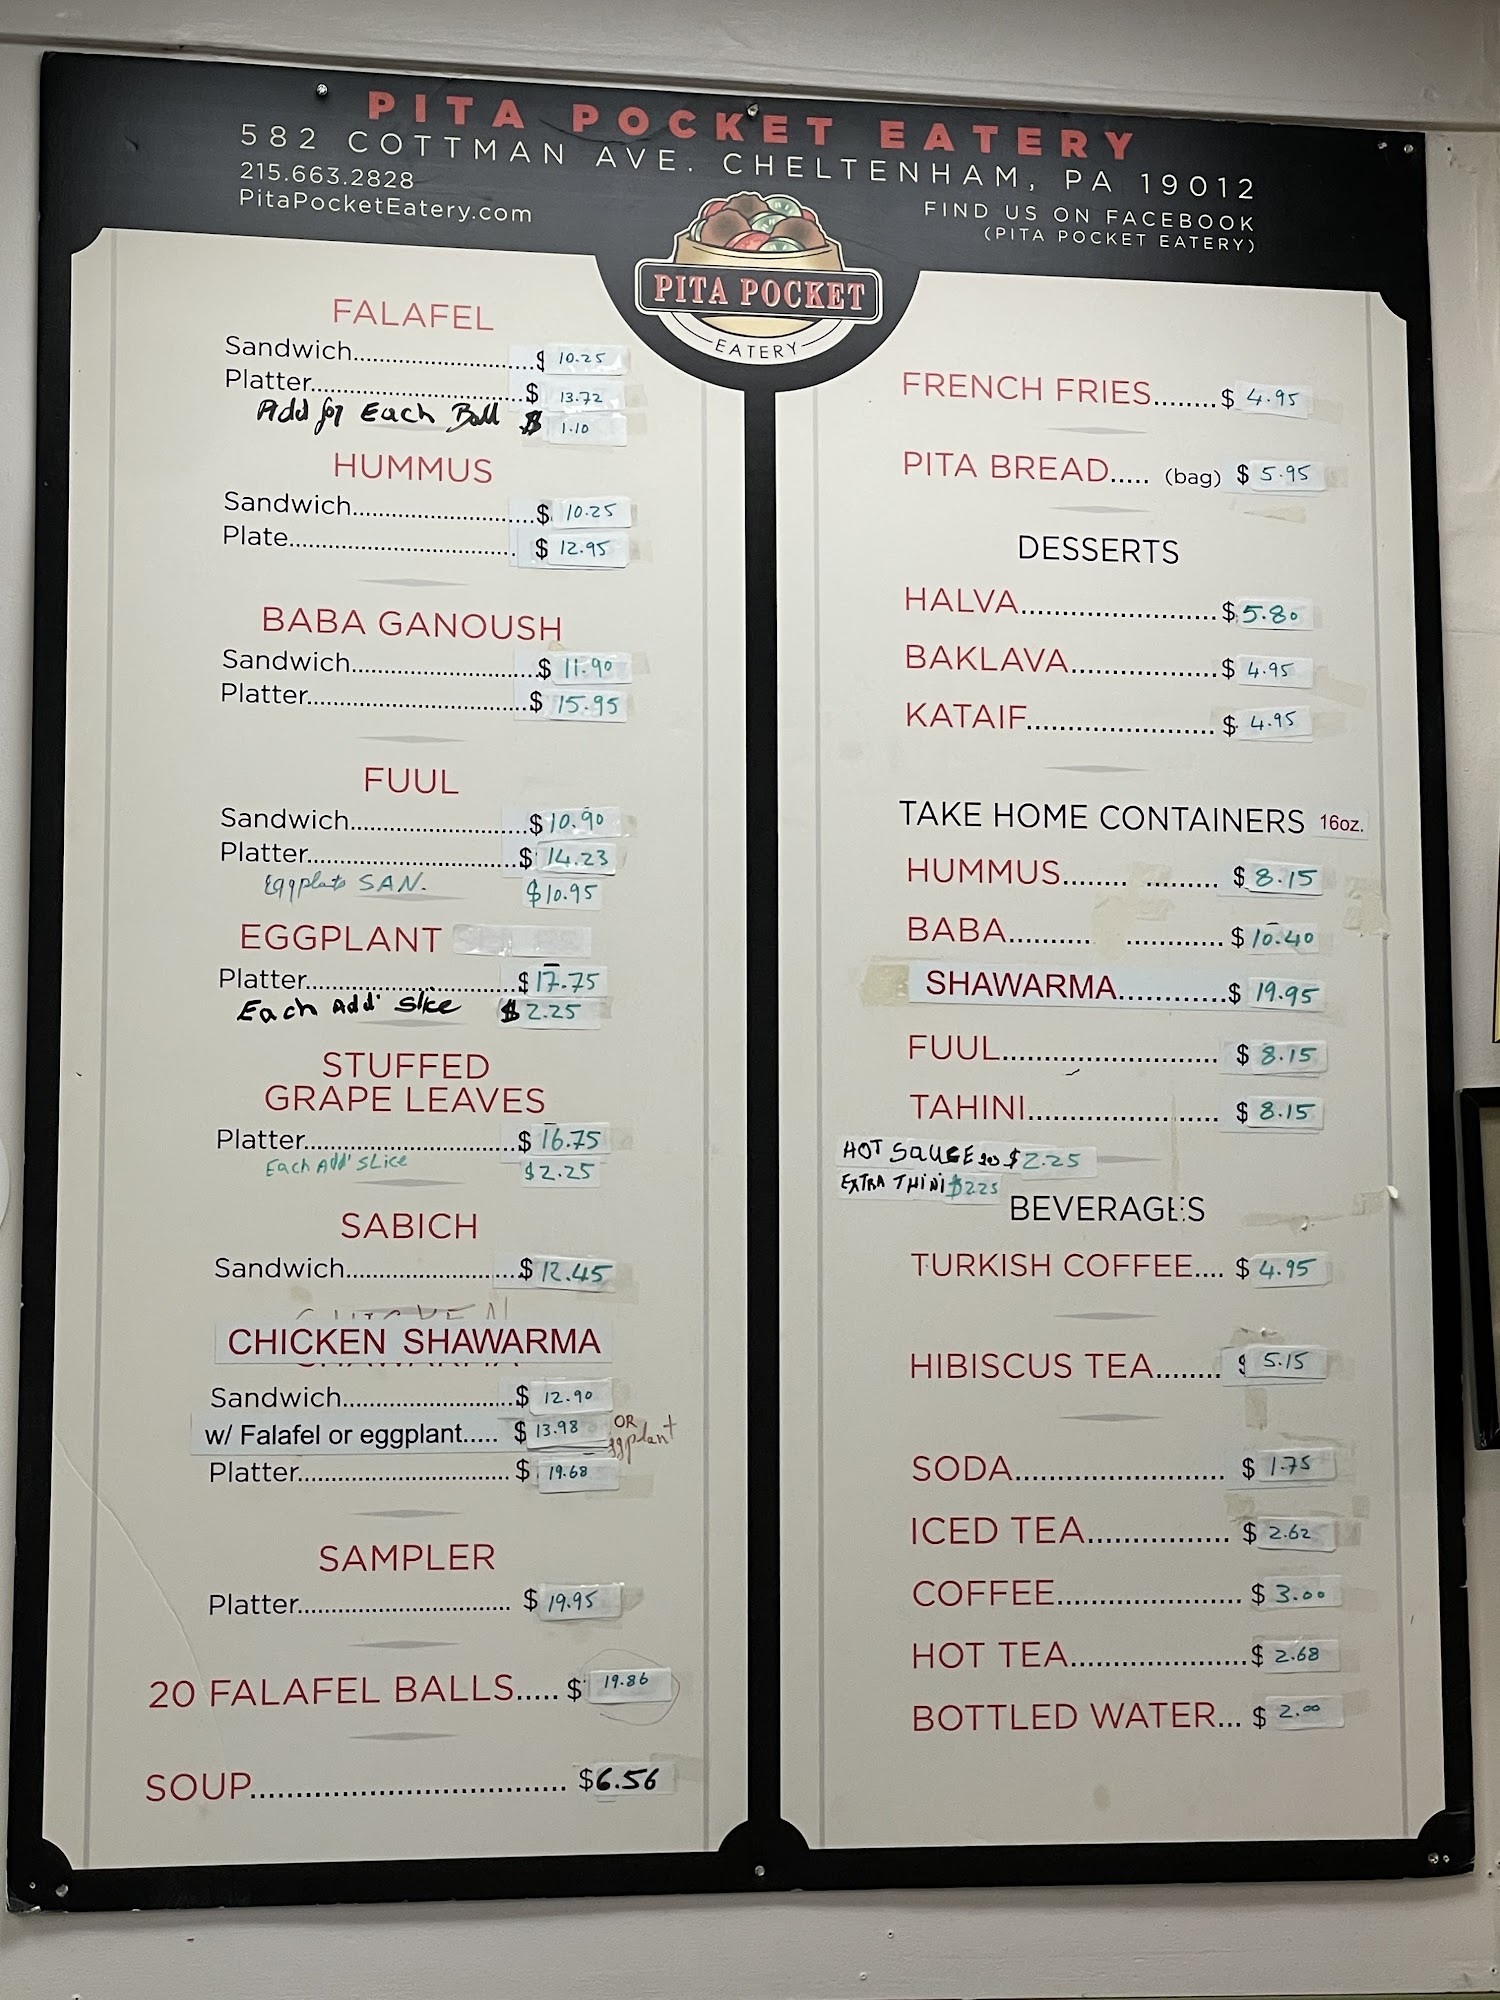 PITA POCKET EATERY
582 COTTMAN AVE. CHELTENHAM, PA 19012
215.663.2828
PitaPocketEatery.com
FIND US ON FACEBOOK
(PITA POCKET EATERY)
PITA POCKET
EATERY
FALAFEL
Sandwich.....................$ 10.25
Platter.....................$ 13.72
Add for Each Ball $ 1.10
HUMMUS
Sandwich.....................$ 10.25
Plate.....................$ 12.95
BABA GANOUSH
Sandwich.....................$ 11.90
Platter.....................$ 15.95
FUUL
Sandwich.....................$ 10.90
Platter.....................$ 14.23
SAN. $10.95
EGGPLANT
Platter.....................$ 17.75
Each Add' Slice $ 2.25
STUFFED
GRAPE LEAVES
Platter.....................$ 16.75
Each Add' SLice $2.25
SABICH
Sandwich.....................$ 12.45
CHICKEN SHAWARMA
Sandwich.....................$ 12.90
OR
w/ Falafel or eggplant..... $ 13.98
Platter.....................$ 19.68
SAMPLER
Platter..................... $ 19.95
20 FALAFEL BALLS..... $ 19.86
SOUP................................ $6.56
FRENCH FRIES.......$ 4.95
PITA BREAD..... (bag) $ 5.95
DESSERTS
HALVA....................$ 5.80
BAKLAVA...............$ 4.95
KATAIF................... $ 4.95
TAKE HOME CONTAINERS 16oz.
HUMMUS....... ......... $ 8.15
BABA......... ............ $ 10.40
SHAWARMA............$ 19.95
FUUL...................... $ 8.15
TAHINI................... $ 8.15
HOT SAUCE $2.25
EXTRA THiNi $2.25
BEVERAGES
TURKISH COFFEE.... $ 4.95
HIBISCUS TEA....... $ 5.15
SODA..................... $ 1.75
ICED TEA.............. $ 2.62
COFFEE................... $ 3.00
HOT TEA..................$ 2.68
BOTTLED WATER... $ 2.00